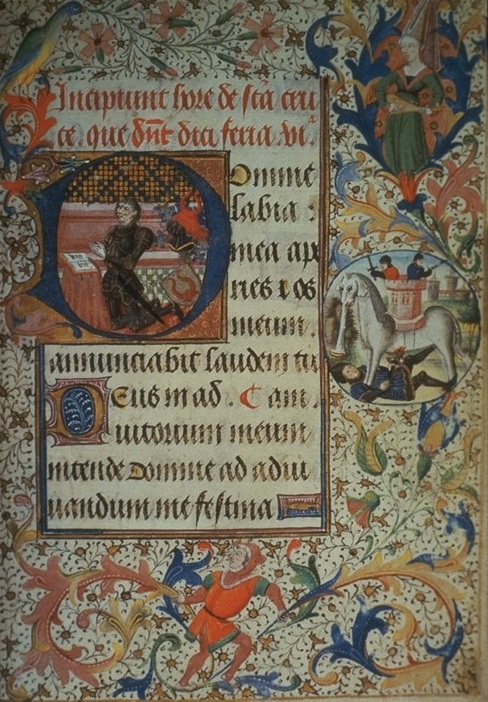 Incipiunt hore de sca cru
ce. que dnt dici feria .vi.
Domine
labia :
mea ape
ries et os
meum.
annunciabit laudem tu
Deus in ad. am.
iutorium meum
intende Domine ad adiu
uandum me festina